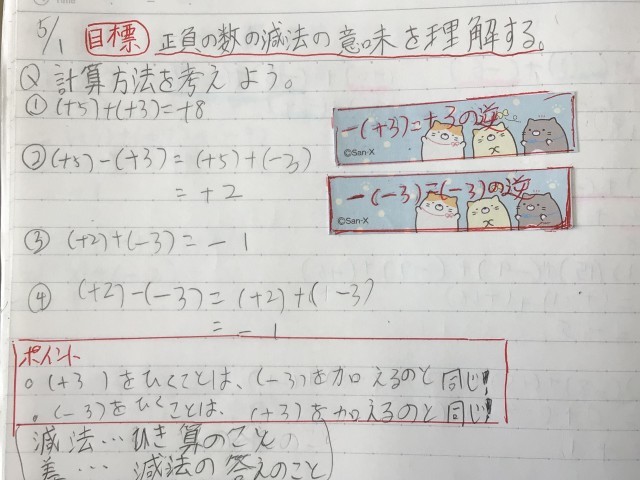 5/1 目標 正負の数の減法の意味を理解する。
Q 計算方法を考えよう。
① (+5)+(+3)=+8
② (+5)-(+3)=(+5)+(-3)
=+2
-(+3)=+3の逆
©San-X
-(-3)=(-3)の逆
©San-X
③ (+2)+(-3)=-1
④ (+2)-(-3)=(+2)+(-3)
=-1
ポイント
○ (+3)をひくことは、(-3)を加えるのと同じ!
○ (-3)をひくことは、(+3)を加えるのと同じ!
減法…ひき算のこと
差… 減法の答えのこと